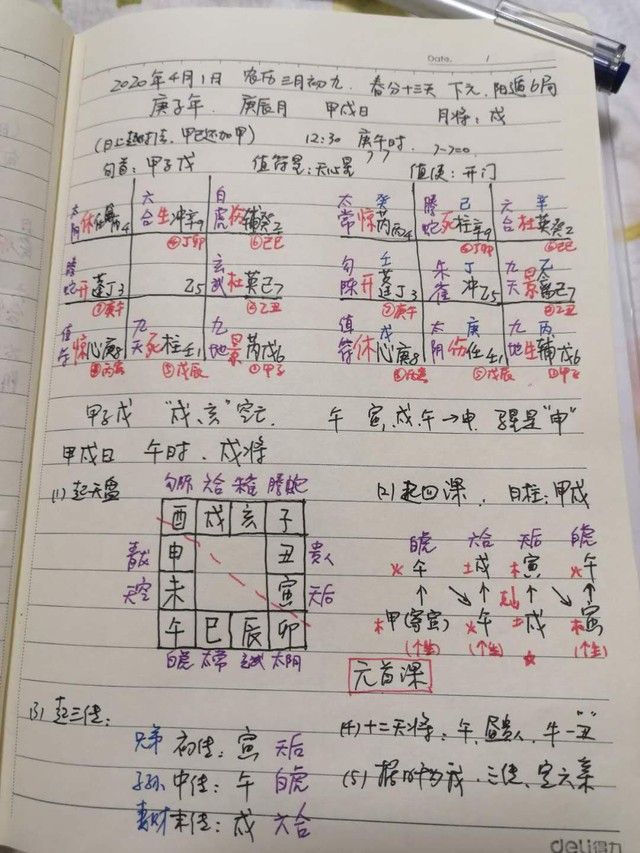 Date. /
2020年4月1日 农历三月初九. 春分十三天 下元. 阳遁6局
庚子年. 庚辰月 甲戌日 月将: 戌
甲己还加甲) 12:30 庚午时.
旬首: 甲子戊 值符星: 天心星 值使: 开门
太阴 休 丙4 六合 生 冲辛9 白虎 辅癸2
④丁卯 ⑥己巳
太常 癸 惊 芮丙4 螣蛇 己 死 柱辛9 六合 辛 杜英癸2
④丁卯 ⑥己巳
螣蛇 开 蓬丁3 乙5 玄武 杜英己7
⑦庚午 ②乙丑
勾陈 壬 开 蓬丁3 朱雀 丁 冲乙5 九天 乙 景 己7
⑦庚午 ②乙丑
值符 惊 心庚8 九天 死 柱壬1 九地 景 芮戊6
⑤戊辰 ①甲子
值符 戊 休 心庚8 太阴 庚 伤 任壬1 九地 丙 生 辅戊6
⑤戊辰 ①甲子
甲子戊 "戌、亥"空亡. 午 寅、戌、午→申. 马星是"申"
甲戌日 午时、戌将
(1) 起天盘 勾陈 六合 朱雀 螣蛇 (2) 起四课、日柱: 甲戌
酉 戌 亥 子
青龙 申 丑 贵人
天空 未 寅 天后
午 巳 辰 卯
白虎 太常 玄武 太阴
白虎 六合 天后 白虎
火午 土戌 木寅 火午
↑ ↘ ↑ ↘ ↑
木甲(寄寅) 火午 土戌 木寅
(个生) (个生) ☆ (个生)
元首课
(3) 起三传: (4) 十二天将: 午、昼贵人、牛一"丑"
兄弟 初传: 寅 天后
子孙 中传: 午 白虎 (5) 三传、定六亲
妻财 末传: 戌 六合
deli得力